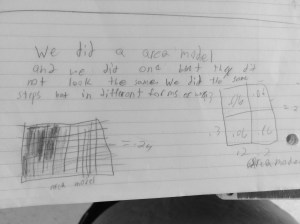 We did a area model
and we did one but they did
not look the same we did the same
steps but in different forms
.7
= .24
area model
area model